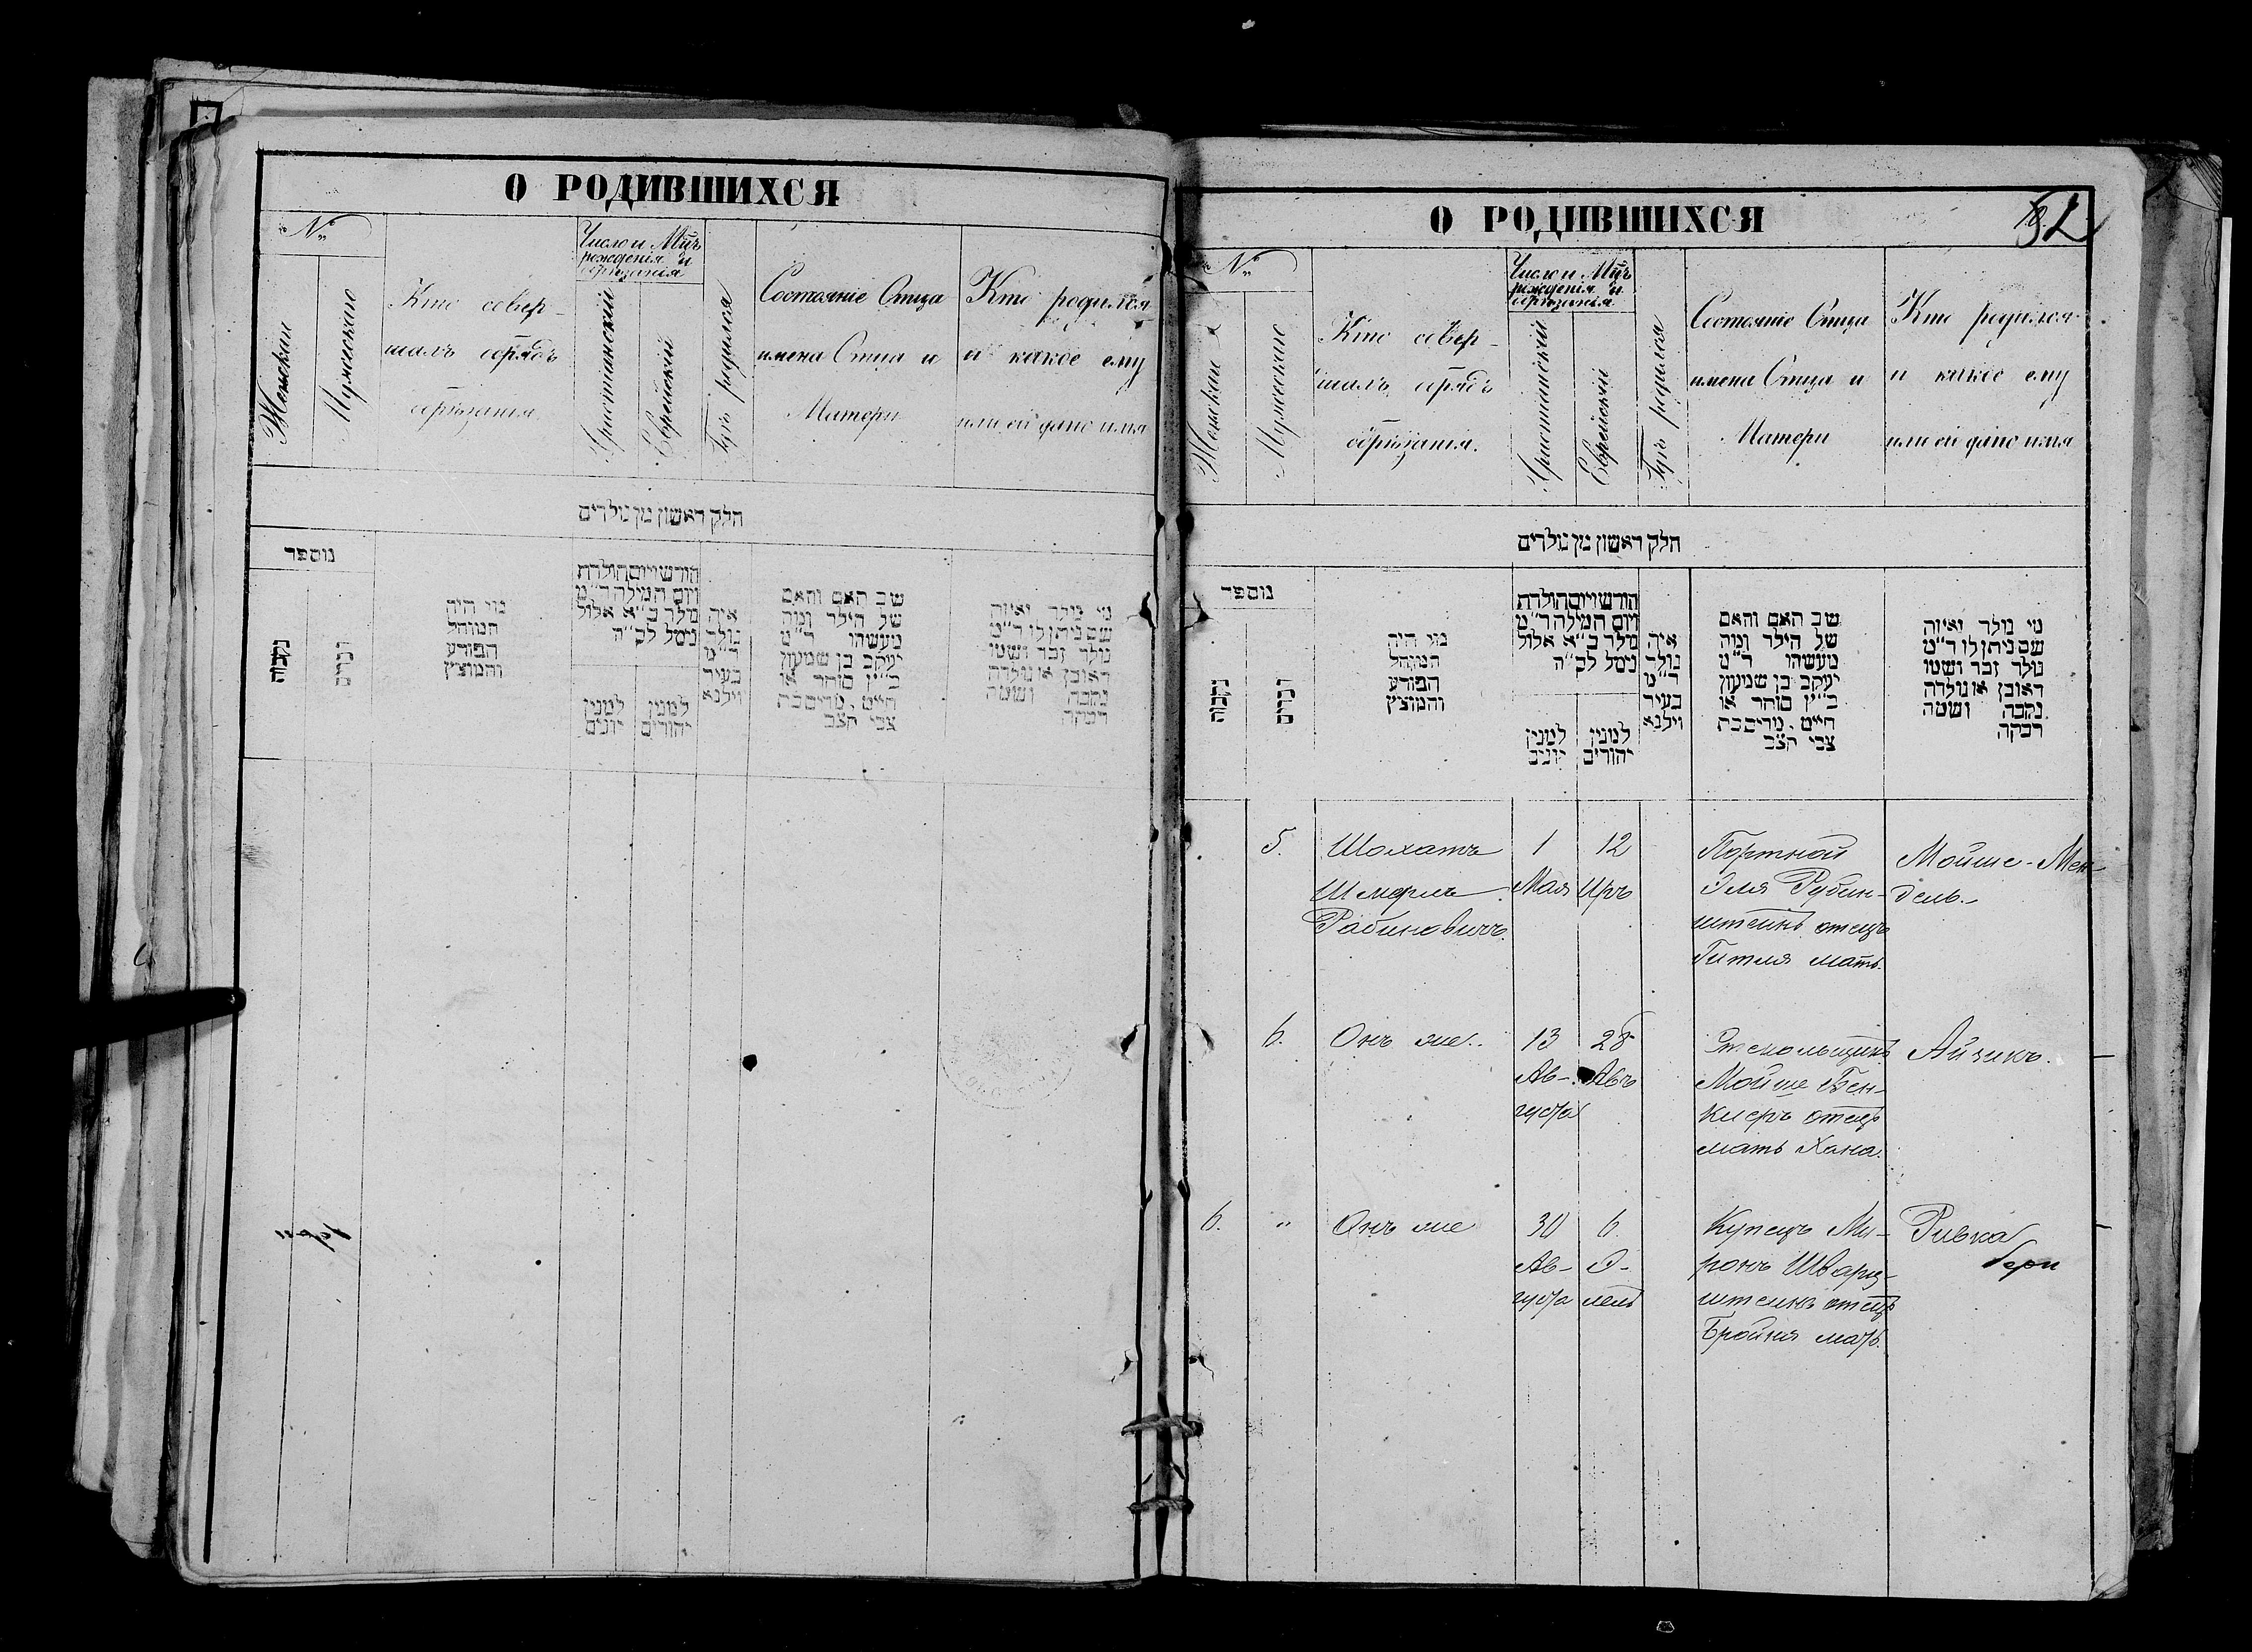 О РОДИВШИХСЯ
№
Женскаго
Мужескаго
Кто совер-
шалъ обрядъ
обрѣзанія
Число и Мѣц.
рожденія и
обрѣзанія
Христіанскій
Еврейскій
Гдѣ родился
Состояніе Отца
имена Отца и
Матери
Кто родился
и какое ему
или ей дано имя
חלק ראשון מן נולדים
מספר
נקבות
זכרים
מי היה
המוהל
הפורע
והמוצץ
חודש ויום הולדת
ויום המילה ד״מ
נולד ב״א אלול
נימל לב״ה
למנין
יונים
למנין
יהודים
איה
נולד
ד״מ
בעיר
וילנא
שם האב והאם
של הילד ומה
מעשהו ד״מ
יעקב בן שמעון
כ״ץ סוחר או
חייט, מרים בת
צבי הצב
מי נולד ואיזה
שם ניתן לו ד״מ
נולד זכר ושמו
ראובן או נולדה
נקבה ושמה
רבקה
О РОДИВШИХСЯ
52
№
Женскаго
Мужескаго
Кто совер-
шалъ обрядъ
обрѣзанія.
Число и Мѣц.
рожденія и
обрѣзанія
Христіанскій
Еврейскій
Гдѣ родился
Состояніе Отца
имена Отца и
Матери
Кто родился
и какое ему
или ей дано имя
חלק ראשון מן נולדים
מספר
נקבות
זכרים
מי היה
המוהל
הפורע
והמוצץ
חודש ויום הולדת
ויום המילה ד״מ
נולד ב״א אלול
נימל לב״ה
למנין
יונים
למנין
יהודים
איה
נולד
ד״מ
בעיר
וילנא
שם האב והאם
של הילד ומה
מעשהו ד״מ
יעקב בן שמעון
כ״ץ סוחר או
חייט, מרים בת
צבי הצב
מי נולד ואיזה
שם ניתן לו ד״מ
נולד זכר ושמו
ראובן או נולדה
נקבה ושמה
רבקה
5.
Шохатъ
Шмерль
Рабиновичъ.
1
Мая
12
Иръ
Портной
Эля Рубин-
штейнъ отецъ
Гитля мать.
Мойше-Мен-
дель.-
6.
Онъ же.
13
Ав-
густа
28
Авъ
Стекольщикъ
Мойше Бен-
киеръ отецъ
мать Хана.
Айзикъ.
6.
"
Онъ же
30
Ав-
густа
6
Э-
лель
Купецъ Ми-
ронъ Шварц-
штейнъ отецъ
Бройня мать.
Ривка